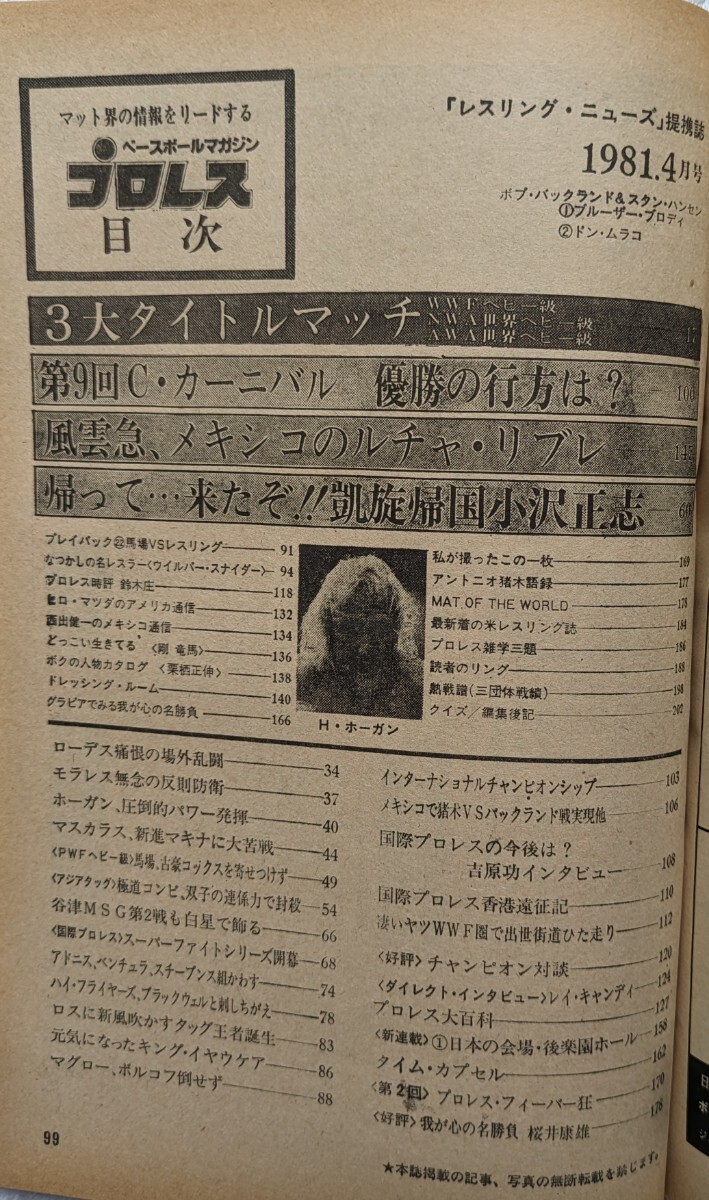 マット界の情報をリードする
ベースボールマガジン
プロレス
目次
「レスリング・ニューズ」提携誌
1981.4月号
ボブ・バックランド&スタン・ハンセン
①ブルーザー・ブロディ
②ドン・ムラコ
3大タイトルマッチ WWFヘビー級 NWA世界ヘビー級 AWA世界ヘビー級 17
第9回C・カーニバル 優勝の行方は? 100
風雲急、メキシコのルチャ・リブレ 143
帰って…来たぞ!!凱旋帰国小沢正志 60
プレイバック㉒馬場VSレスリング 91
なつかしの名レスラー〈ウイルバー・スナイダー〉 94
プロレス時評 鈴木庄 118
ヒロ・マツダのアメリカ通信 132
西出健一のメキシコ通信 134
どっこい生きてる〈剛 竜馬〉 136
ボクの人物カタログ〈栗栖正伸〉 138
ドレッシング・ルーム 140
グラビアでみる我が心の名勝負 166
H・ホーガン
私が撮ったこの一枚 169
アントニオ猪木語録 177
MAT OF THE WORLD 178
最新着の米レスリング誌 184
プロレス雑学三題 186
読者のリング 188
熱戦譜(三団体戦績) 198
クイズ/編集後記 202
ローデス痛恨の場外乱闘 34
モラレス無念の反則防衛 37
ホーガン、圧倒的パワー発揮 40
マスカラス、新進マキナに大苦戦 44
〈PWFヘビー級〉馬場、古豪コックスを寄せつけず 49
〈アジアタッグ〉極道コンビ、双子の連係力で封殺 54
谷津MSG第2戦も白星で飾る 66
〈国際プロレス〉スーパーファイトシリーズ開幕 68
アドニス、ベンチュラ、スチーブンス組かわす 74
ハイ・フライヤーズ、ブラックウェルと刺しちがえ 78
ロスに新風吹かすタッグ王者誕生 83
元気になったキング・イヤウケア 86
マグロー、ボルコフ倒せず 88
インターナショナルチャンピオンシップ 103
メキシコで猪木VSバックランド戦実現他 106
国際プロレスの今後は?
吉原功インタビュー 108
国際プロレス香港遠征記 110
凄いヤツWWF圏で出世街道ひた走り 112
〈好評〉チャンピオン対談 120
〈ダイレクト・インタビュー〉レイ・キャンディ 124
プロレス大百科 127
〈新連載〉①日本の会場・後楽園ホール 158
タイム・カプセル 162
〈第2回〉プロレス・フィーバー狂 170
〈好評〉我が心の名勝負 桜井康雄 176
★本誌掲載の記事、写真の無断転載を禁じます。
99